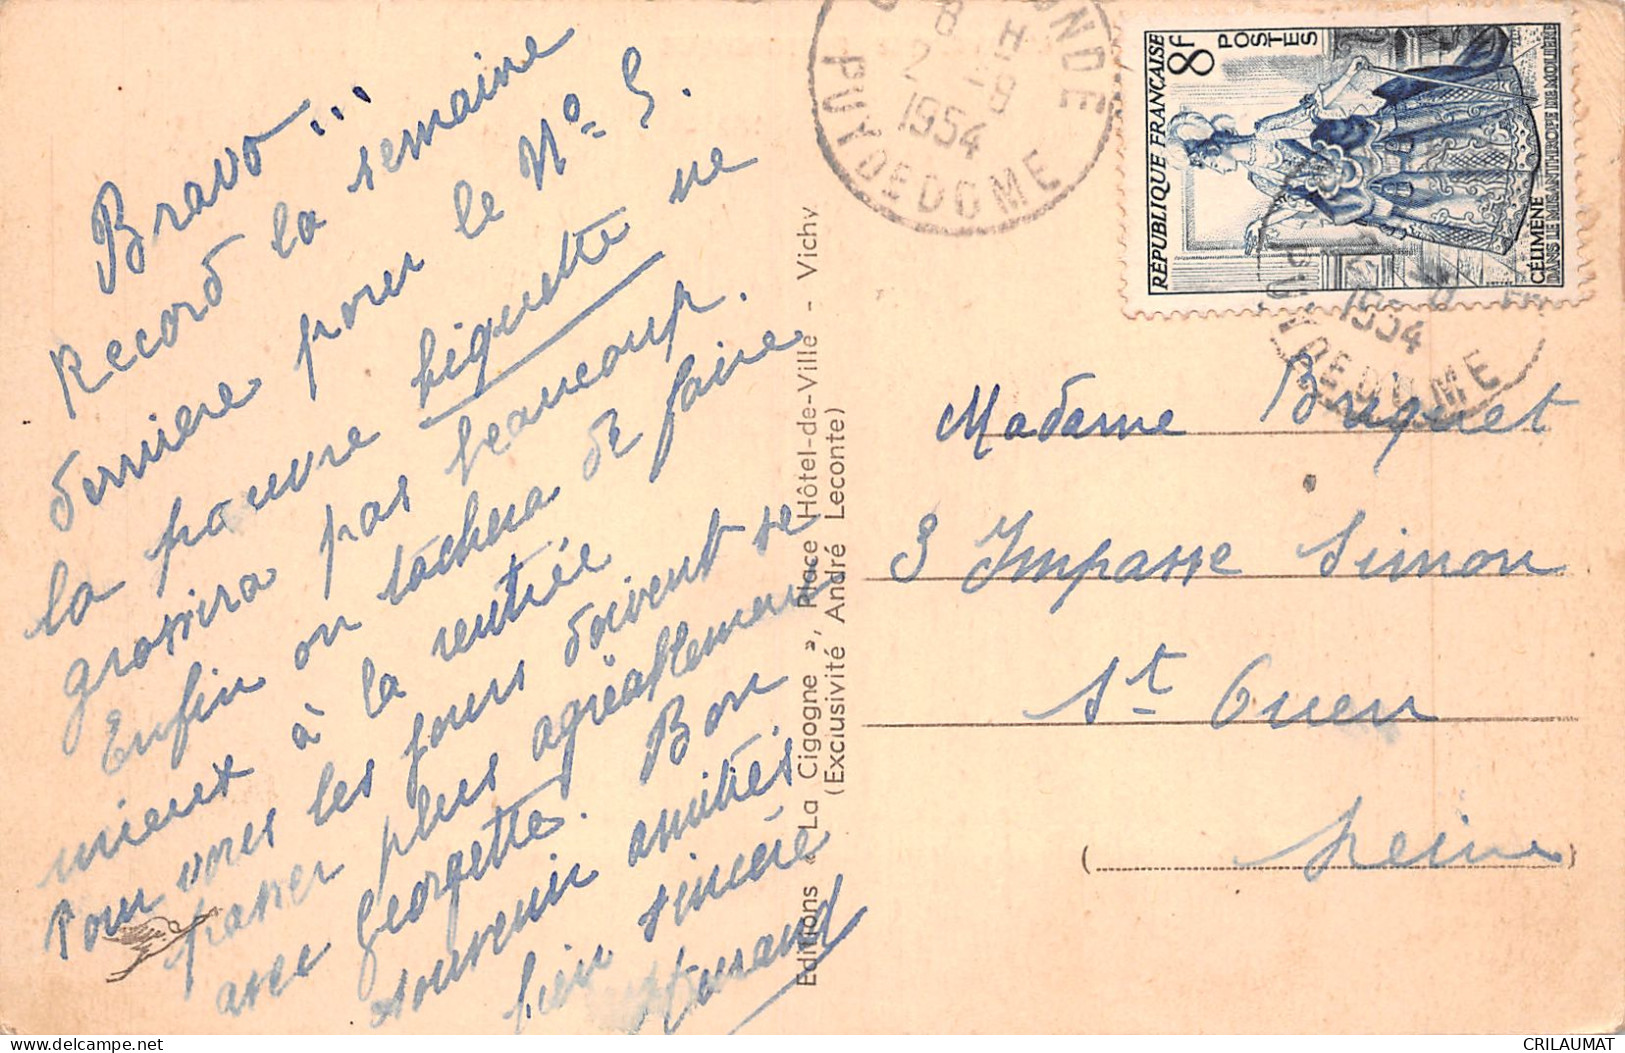 Bravo...
Record la semaine
dernière pour le Nº 5.
la pauvre higuette ne
grossira pas beaucoup.
Enfin on tachera de faire
mieux à la rentrée
Pour vous les jours doivent se
passer plus agréablement
avec Georgette. Bon
souvenir amitiés
bien sincère
Durand
Editions « La Cigogne », Place Hôtel-de-Ville - Vichy
(Exclusivité André Leconte)
8 H
2 - 8
1954
PUY DE DOME
RÉPUBLIQUE FRANÇAISE
8F
POSTES
CÉLIMÈNE
DANS LE MISANTHROPE DE MOLIÈRE
1954
PUY DE DOME
Madame Briquet
3 Impasse Simon
St Ouen
(Seine)
CRILAUMAT